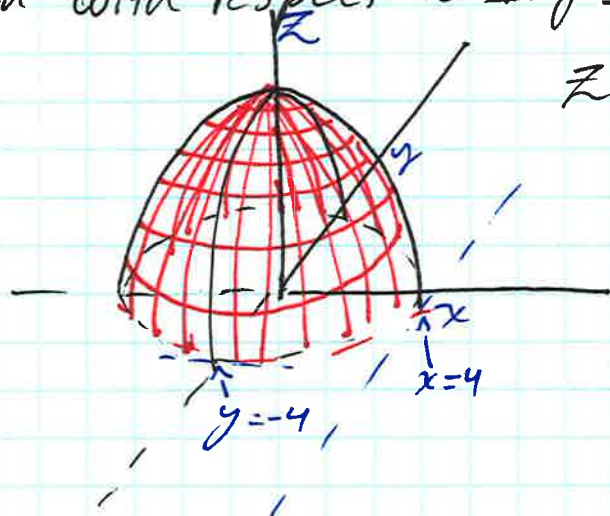 with respect
z
z
y
x
x=4
y=-4